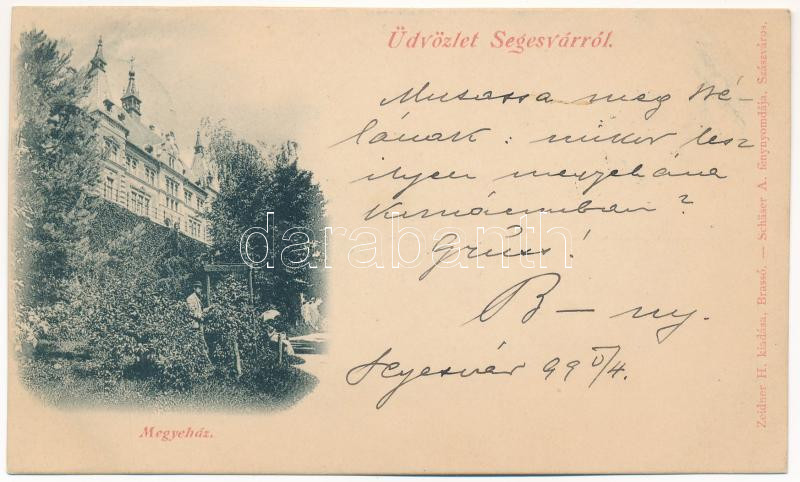 Üdvözlet Segesvárról.
Mutassa meg Bé-
lának: mikor lesz
ilyen megyeháza
Gruss!
B—ny.
Segesvár 99 V/4.
Megyeház.
Zeidner H. kiadása, Brassó. — Schäser A. fénynyomdája, Szászváros.
darabanth